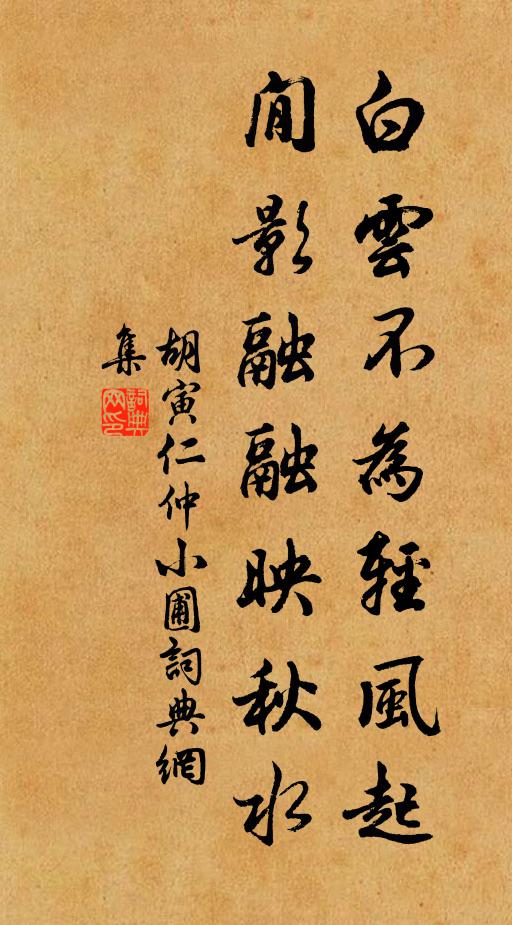 白雲不為輕風起
閒影融融映秋水
胡寅仁仲小圃詞典網
集
詞典網印